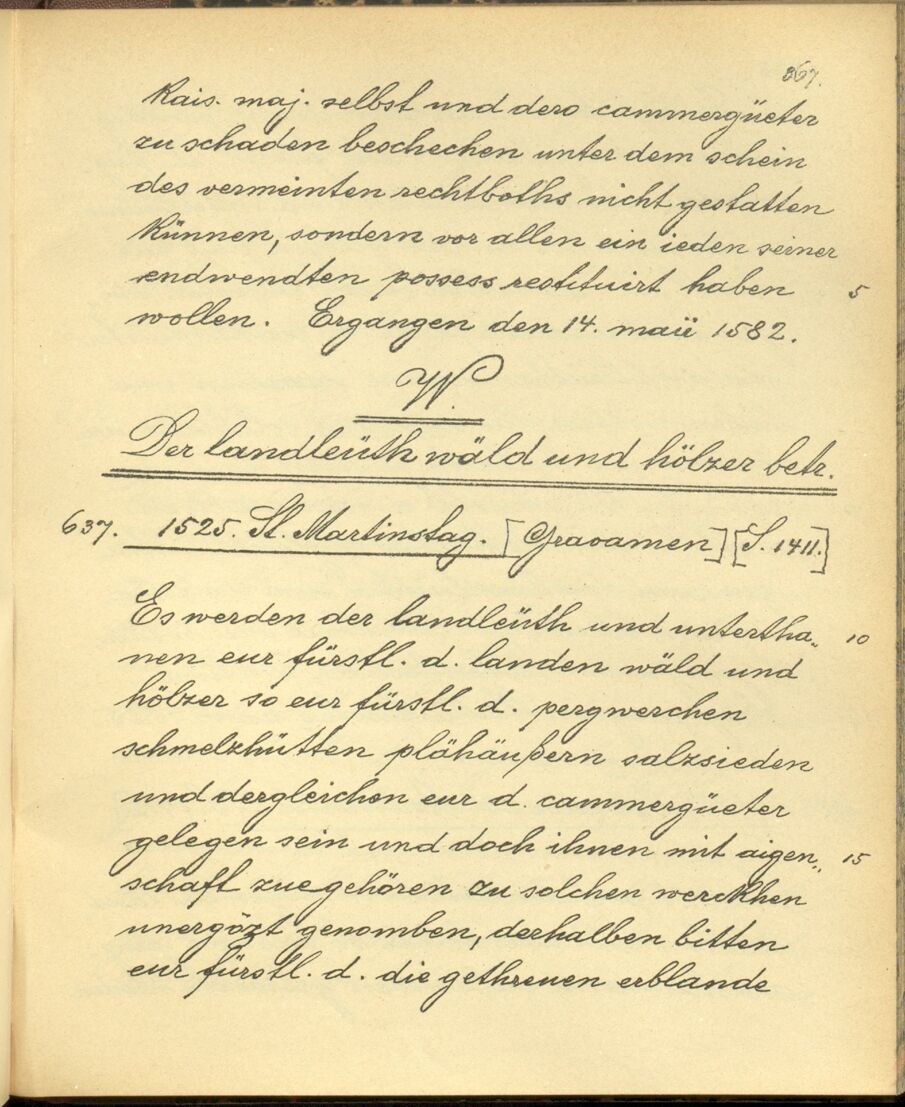 367.
Kais. maj. selbst und dero cammergüeter
zu schaden beschechen unter dem schein
des vermeinten rechtboths nicht gestatten
künnen, sondern vor allen ein ieden seiner
endwendten possess restituirt haben 5
wollen. Ergangen den 14. maii 1582.
W.
Der landleüth wäld und hölzer betr.
637. 1525. St. Martinstag. [Gravamen] [S. 1411.]
Es werden der landleüth und untertha„ 10
nen eur fürstl. d. landen wäld und
hölzer so eur fürstl. d. pergwerchen
schmelzhütten plähäußern salzsieden
und dergleichen eur d. cammergüeter
gelegen sein und doch ihnen mit aigen„ 15
schaft zuegehören zu solchen werckhen
unergözt genomben, derhalben bitten
eur fürstl. d. die gethreuen erblande